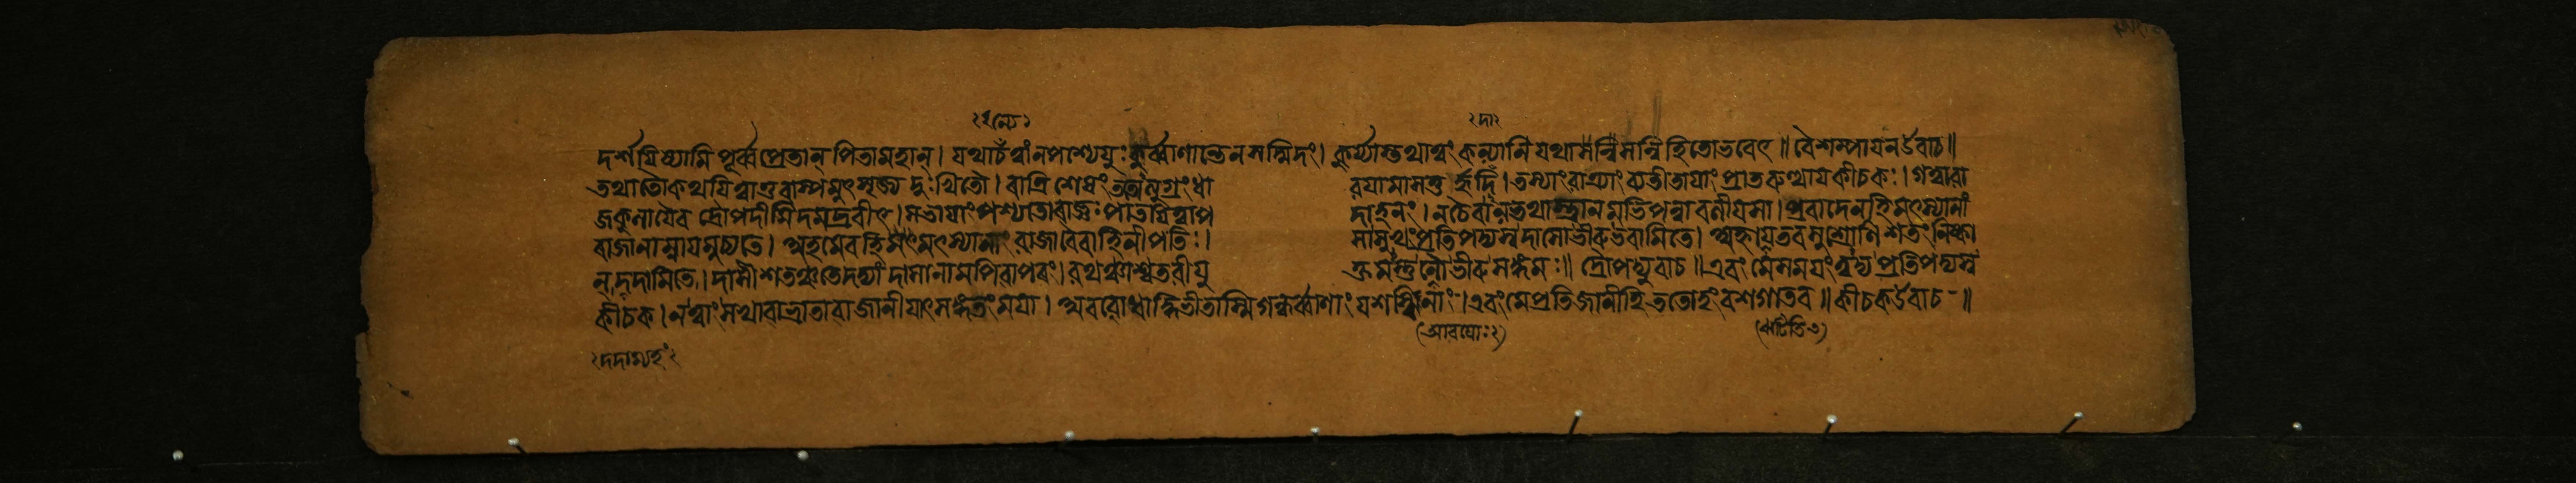 ঽন্যে
দা
দর্শযিষ্যামি পূর্ব্বপ্রেতান্ পিতামহান্। যথাচত্বাংনপশ্যেযুঃ কুর্ব্বাণান্তেন মম্মিদং। কুর্য্যাস্তথাত্বং কল্যানি যথা সন্নিহিতোভবেৎ॥ বৈশম্পাযনউবাচ॥
তথাতৌকথযিত্বাতু বাষ্পমুৎসৃজ্য দুঃখিতৌ। ৰাত্রি শেষং ধা ৰযামাসতু র্হৃদি। তস্যাং ৰাত্র্যাং ব্যতীতাযাং প্রাতৰুত্থায কীচকঃ। গত্বাৰা
জকুলাযৈব দ্রৌপদীমিদমব্রবীৎ। সভাযাং পশ্যতোৰাজ্ঞঃ পাতযিত্বাপ দাহনং। নচৈবালভথাস্ত্রানমভিপন্না বলীযসা। প্রবাদেনহি মৎস্যানাং
ৰাজানাম্নাযমুচ্যতে। অহমেবহি মৎস্যানাং ৰাজাবৈবাহিনীপতিঃ। সাসুখংপ্রতিপদ্যস্ব দাসোভীৰুভবামিতে। অহ্নাযতবসুশ্রোণি শতংনিষ্কা
ন্ দদামিতে। দাসীশতঞ্চতেদদ্যাং দাসানামপিচাপৰং। ৰথঞ্চাশ্বতৰীযু ক্তমস্তুনৌভীৰুসঙ্গমঃ॥ দ্রৌপদ্যুবাচ॥ এবং মেসমযংত্বদ্য প্রতিপদ্যস্ব
কীচক। নত্বাংসখাবাভ্রাতাবাজানীযাৎসঙ্গতংমযা। অববোধাদ্ধিভীতাস্মিগন্ধর্ব্বাণাং যশস্বিনাং। এবংমেপ্রতিজানীহি ততোহংবশগাতব॥ কীচকউবাচ॥
(आवयोः)
দদাম্যহং